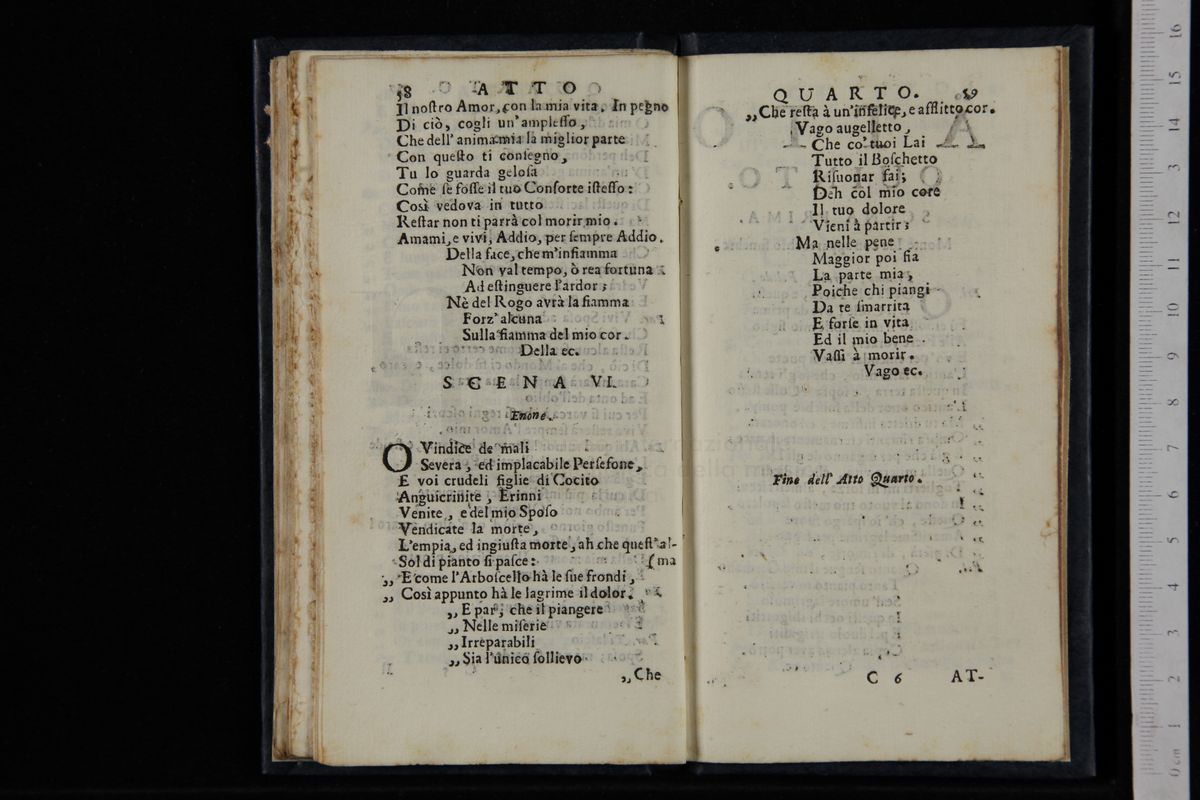 58 ATTO
Il noſtro Amor, con la mia vita. In pegno
Di ciò, cogli un'ampleſſo,
Che dell'anima mia la miglior parte
Con queſto ti conſegno,
Tu lo guarda geloſa
Come ſe foſſe il tuo Conſorte iſteſſo:
Così vedova in tutto
Reſtar non ti parrà col morir mio.
Amami, e vivi, Addio, per ſempre Addio.
Della face, che m'infiamma
Non val tempo, ò rea fortuna
Ad eſtinguere l'ardor;
Nè del Rogo avrà la fiamma
Forz' alcuna
Sulla fiamma del mio cor.
Della ec.
SCENA VI.
Enone.
O Vindice de' mali
Severa, ed implacabile Perſefone,
E voi crudeli figlie di Cocito
Anguicrinite, Erinni
Venite, e del mio Spoſo
Vendicate la morte,
L'empia, ed ingiuſta morte, ah che queſt' al-
Sol di pianto ſi paſce: (ma
,, E come l'Arboſcello hà le ſue frondi,
,, Così appunto hà le lagrime il dolor.
,, E par, che il piangere
,, Nelle miſerie
,, Irreparabili
,, Sia l'unico ſollievo
,, Che
QUARTO. 59
,, Che reſta à un'infelice, e afflitto cor.
Vago augelletto,
Che co' tuoi Lai
Tutto il Boſchetto
Riſuonar fai;
Deh col mio core
Il tuo dolore
Vieni à partir;
Ma nelle pene
Maggior poi fia
La parte mia,
Poiche chi piangi
Da te ſmarrita
E forſe in vita
Ed il mio bene
Vaſſi à morir.
Vago ec.
Fine dell' Atto Quarto.
C 6 AT-
0 cm 1 2 3 4 5 6 7 8 9 10 11 12 13 14 15 16